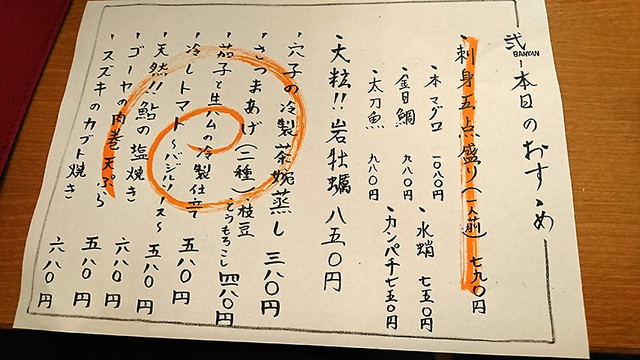 弐
BANKAN
本日のおすすめ
刺身五点盛り(一人前) 七九〇円
・本マグロ 一〇八〇円
・水蛸 七五〇円
・金目鯛 九八〇円
・カンパチ 七五〇円
・太刀魚 九八〇円
・大粒!! 岩牡蠣 八五〇円
・穴子の冷製茶碗蒸し 三八〇円
・さつまあげ(二種)・枝豆・とうもろこし 四八〇円
・茄子と生ハムの冷製仕立て 五八〇円
・冷しトマト〜バジルソース〜 五八〇円
・天然!! 鮎の塩焼き 六八〇円
・ゴーヤの肉巻天ぷら 五八〇円
・スズキのカブト焼き 六八〇円